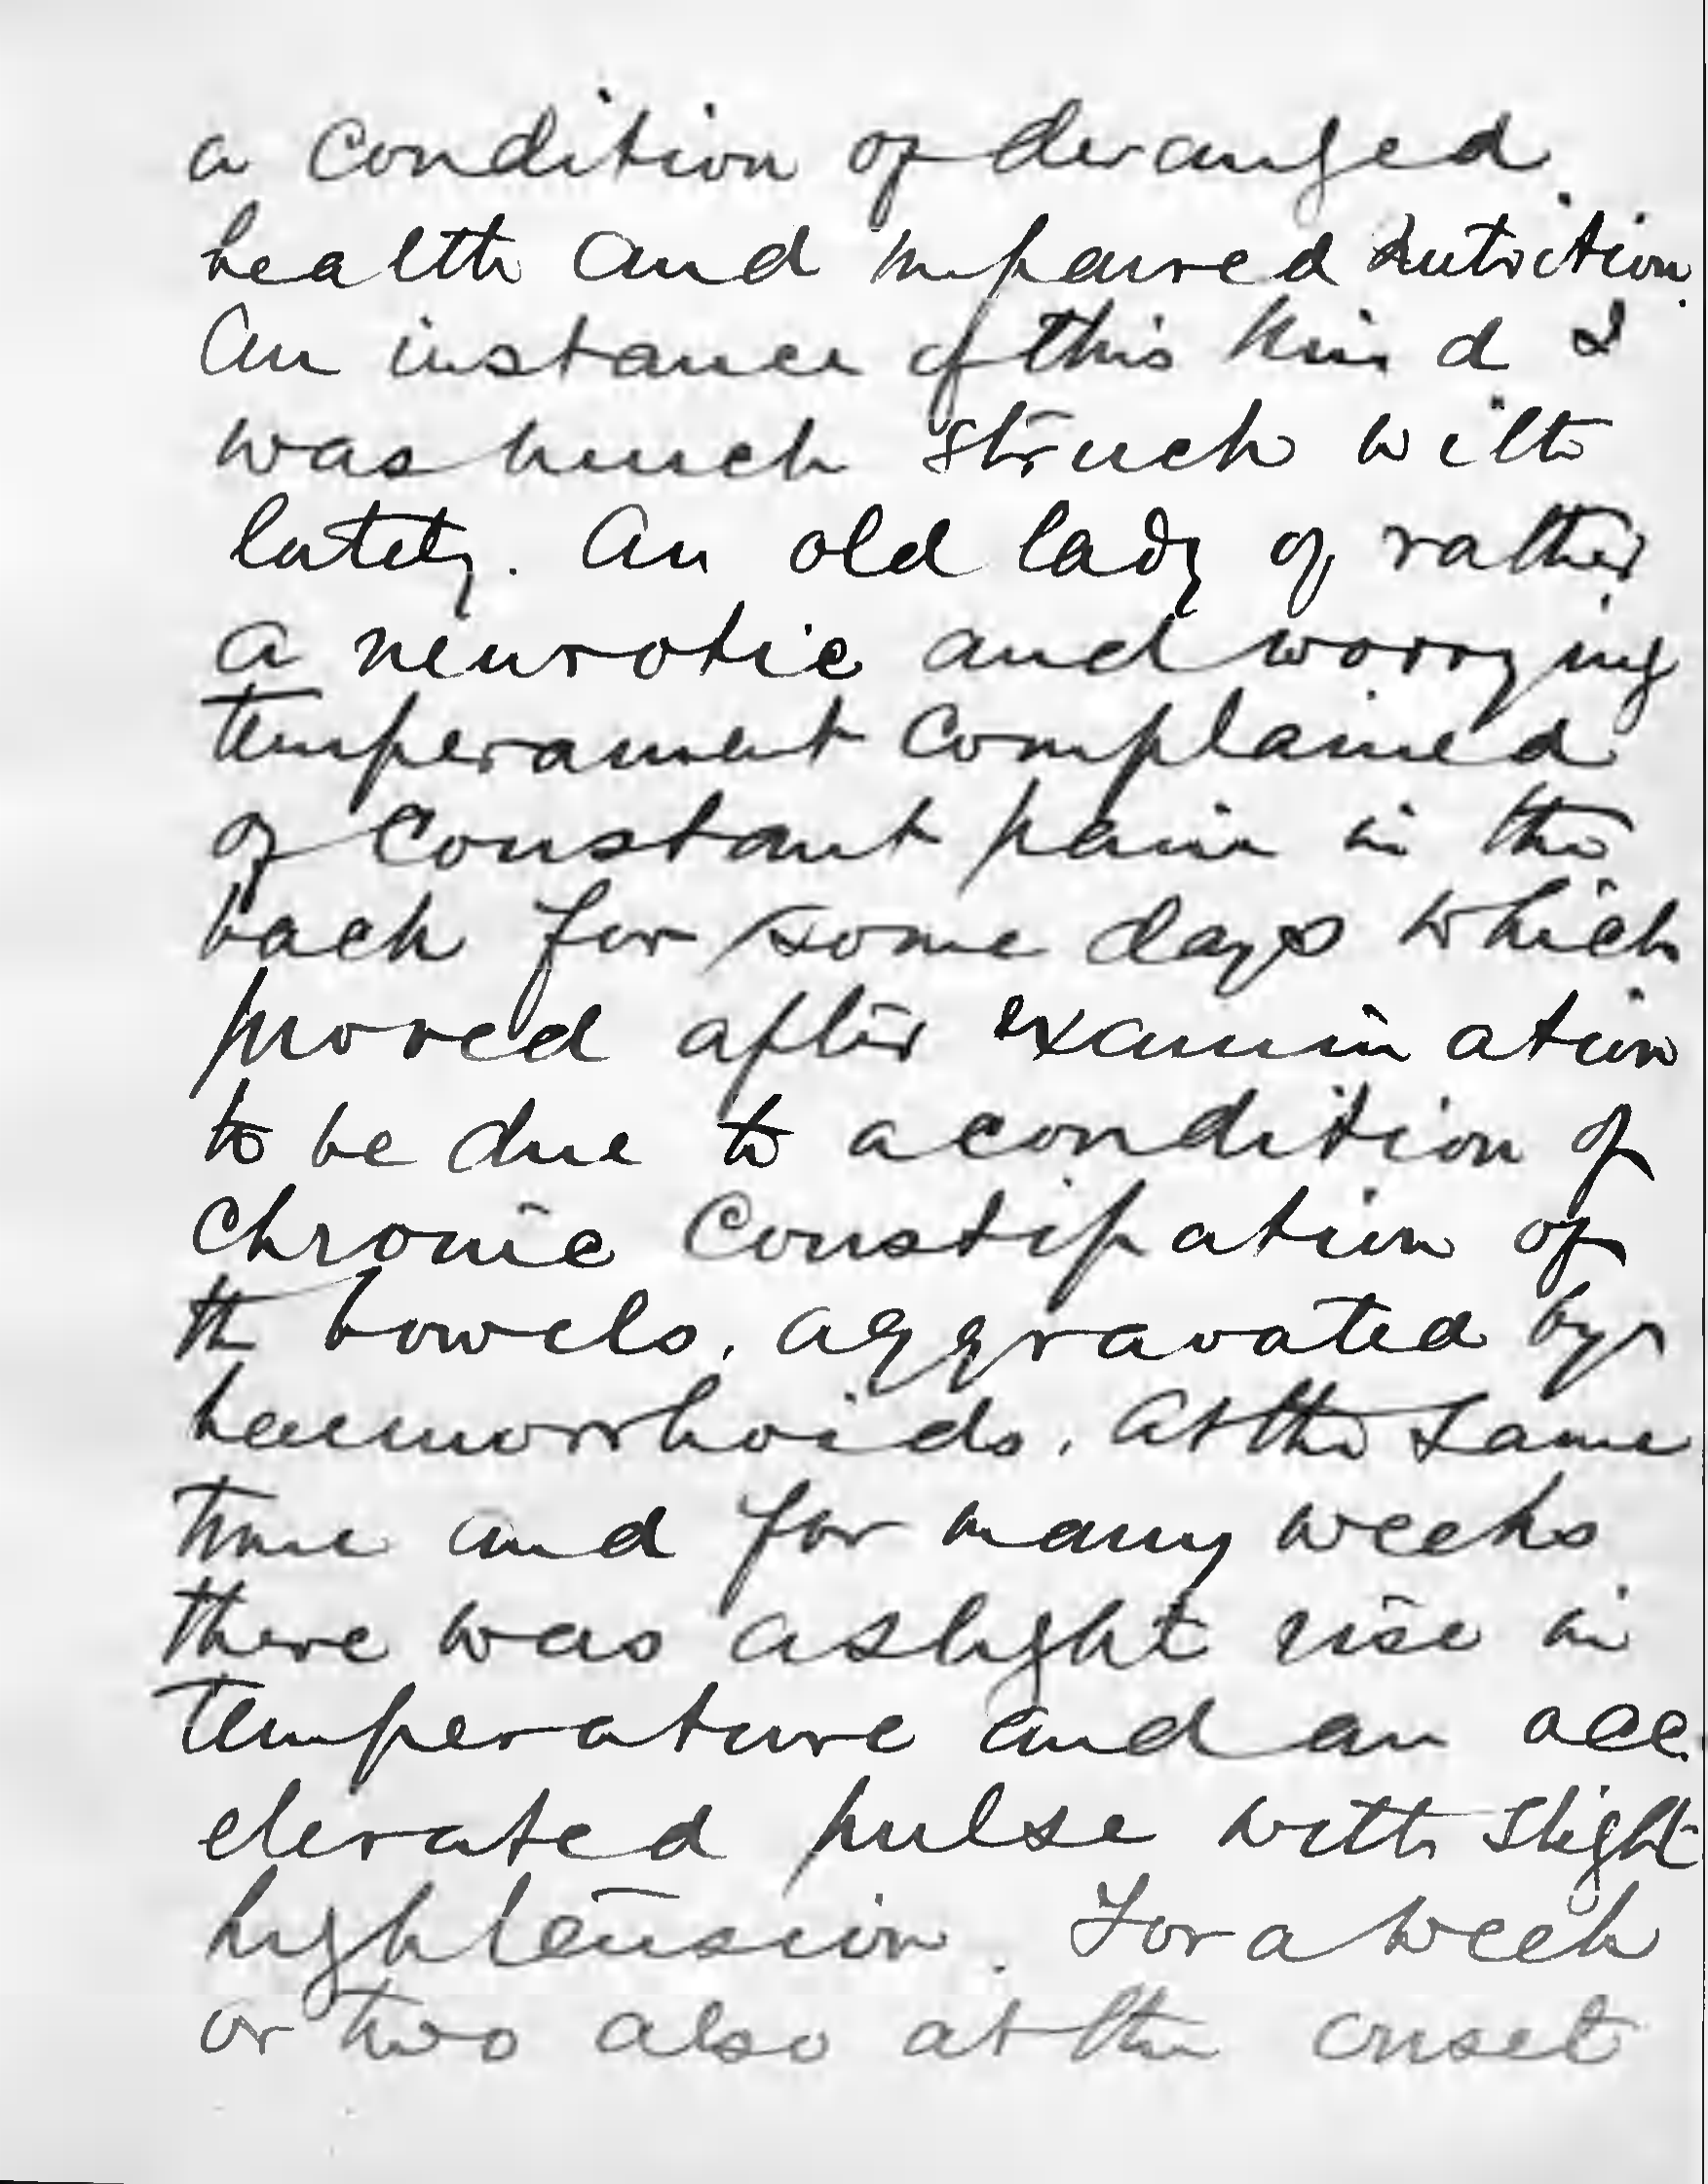 a condition of deranged
health and impaired nutrition.
An instance of this kind I
was much struck with
lately. An old lady of rather
a neurotic and worrying
temperament complained
of constant pain in the
back for some days which
proved after examination
to be due to a condition of
chronic constipation of
the bowels, aggravated by
haemorrhoids. At the same
time and for many weeks
there was a slight rise in
temperature and an acc-
elerated pulse with slight
high tension. For a week
or two also at the onset